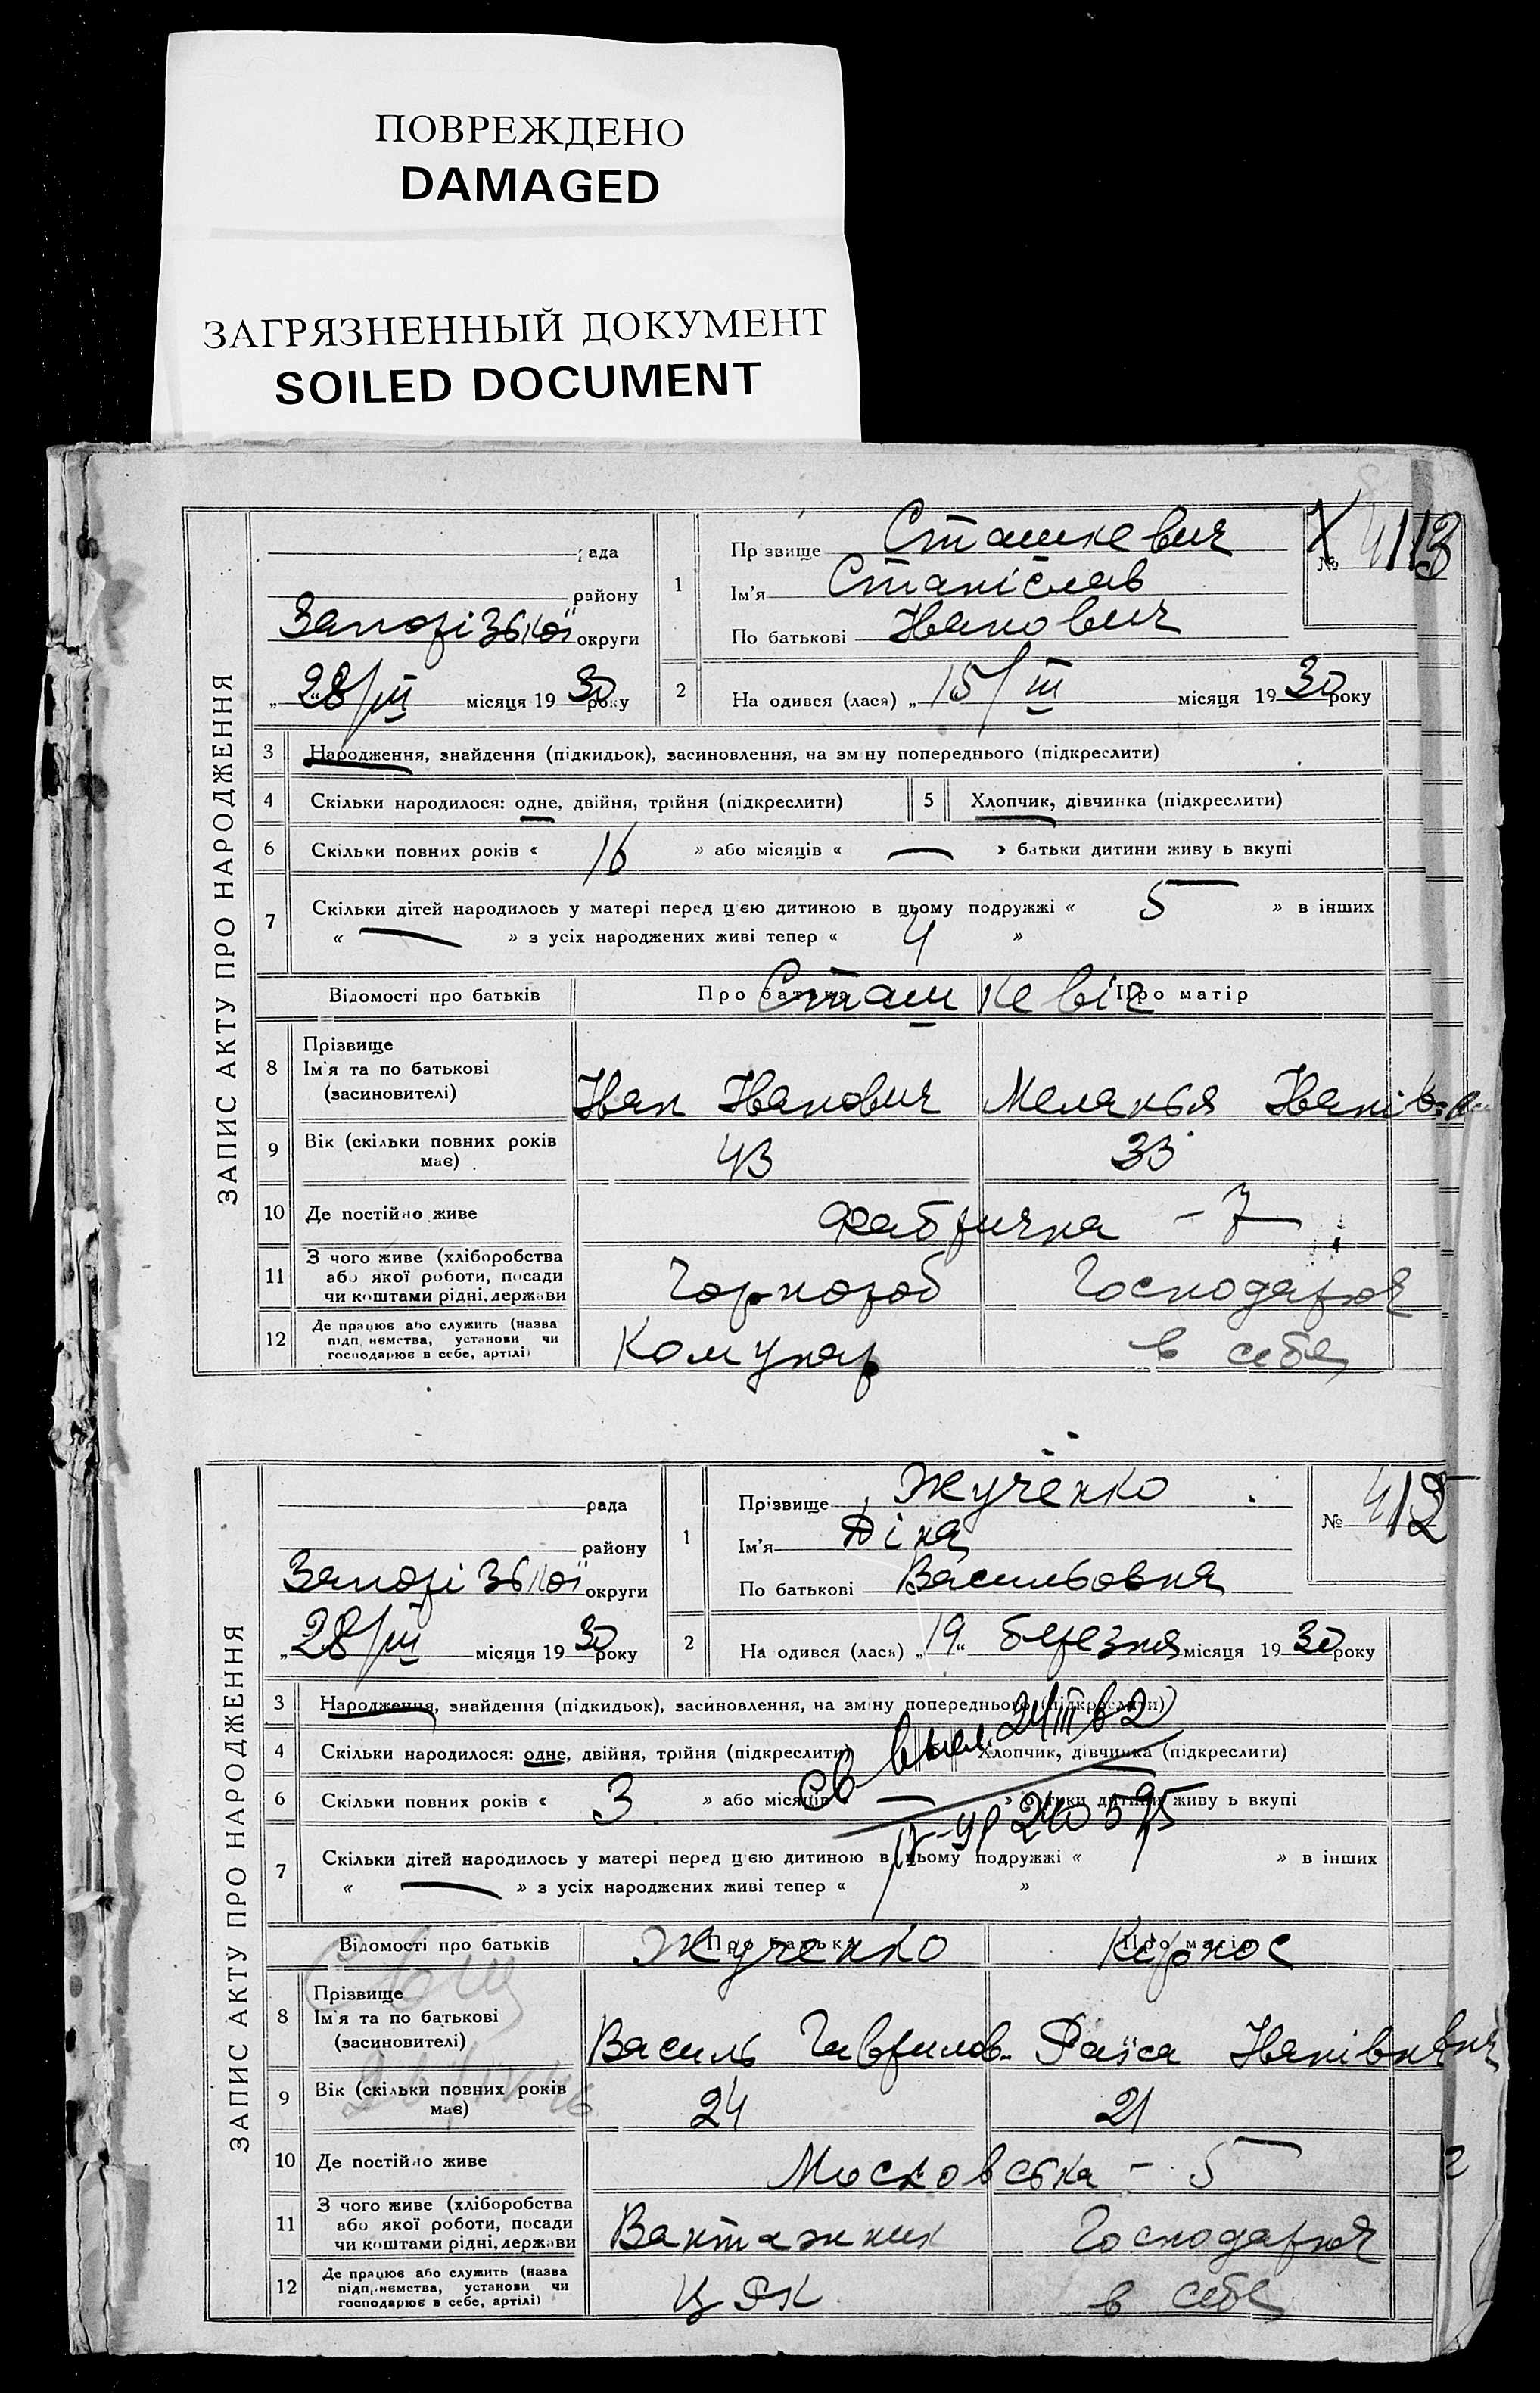 ПОВРЕЖДЕНО
DAMAGED
ЗАГРЯЗНЕННЫЙ ДОКУМЕНТ
SOILED DOCUMENT
ЗАПИС АКТУ ПРО НАРОДЖЕННЯ
рада
району
Запорізької округи
„28/III місяця 1930 року
1 Прзвище Сташкевич
Ім'я Станіслав
По батькові Іванович
№ 413
2 На одився (лася) „15/III місяця 1930 року
3 Народження, знайдення (підкидьок), засиновлення, на зм ну попереднього (підкреслити)
4 Скільки народилося: одне, двійня, трійня (підкреслити) 5 Хлопчик, дівчинка (підкреслити)
6 Скільки повних років « 16 » або місяців « — » батьки дитини живу ь вкупі
7 Скільки дітей народилось у матері перед цєю дитиною в цьому подружжі « 5 » в інших
« — » з усіх народжених живі тепер « 4 »
Відомості про батьків Про батька Про матір
Сташкевіч
8 Прізвище
Ім'я та по батькові
(засиновителі)
Іван Іванович Меланья Іванівна
9 Вік (скільки повних років має) 43 33
10 Де постійно живе Фабрична - 7
11 З чого живе (хліборобства
або якої роботи, посади
чи коштами рідні, держави
Чорнороб Господарює
12 Де працює або служить (назва
підп, немства, установи чи
господарює в себе, артілі)
Комунар в себе
ЗАПИС АКТУ ПРО НАРОДЖЕННЯ
рада
району
Запорізької округи
„28/III місяця 1930 року
1 Прізвище Жученко
Ім'я Діна
По батькові Васильовна
№ 412
2 На одився (лася) „19“ березня місяця 1930 року
3 Народження, знайдення (підкидьок), засиновлення, на зм ну попереднього (підкреслити)
4 Скільки народилося: одне, двійня, трійня (підкреслити) Хлопчик, дівчинка (підкреслити)
6 Скільки повних років « 3 » або місяців « — » батьки дитини живу ь вкупі
7 Скільки дітей народилось у матері перед цєю дитиною в цьому подружжі « » в інших
« — » з усіх народжених живі тепер « »
Відомості про батьків Про батька Про матір
Жученко Кирнос
8 Прізвище
Ім'я та по батькові
(засиновителі)
Василь Гаврилов. Раїса Іванівна
9 Вік (скільки повних років має) 24 21
10 Де постійно живе Московська - 5
11 З чого живе (хліборобства
або якої роботи, посади
чи коштами рідні, держави
Вантажник Господарює
12 Де працює або служить (назва
підп, немства, установи чи
господарює в себе, артілі)
в себе